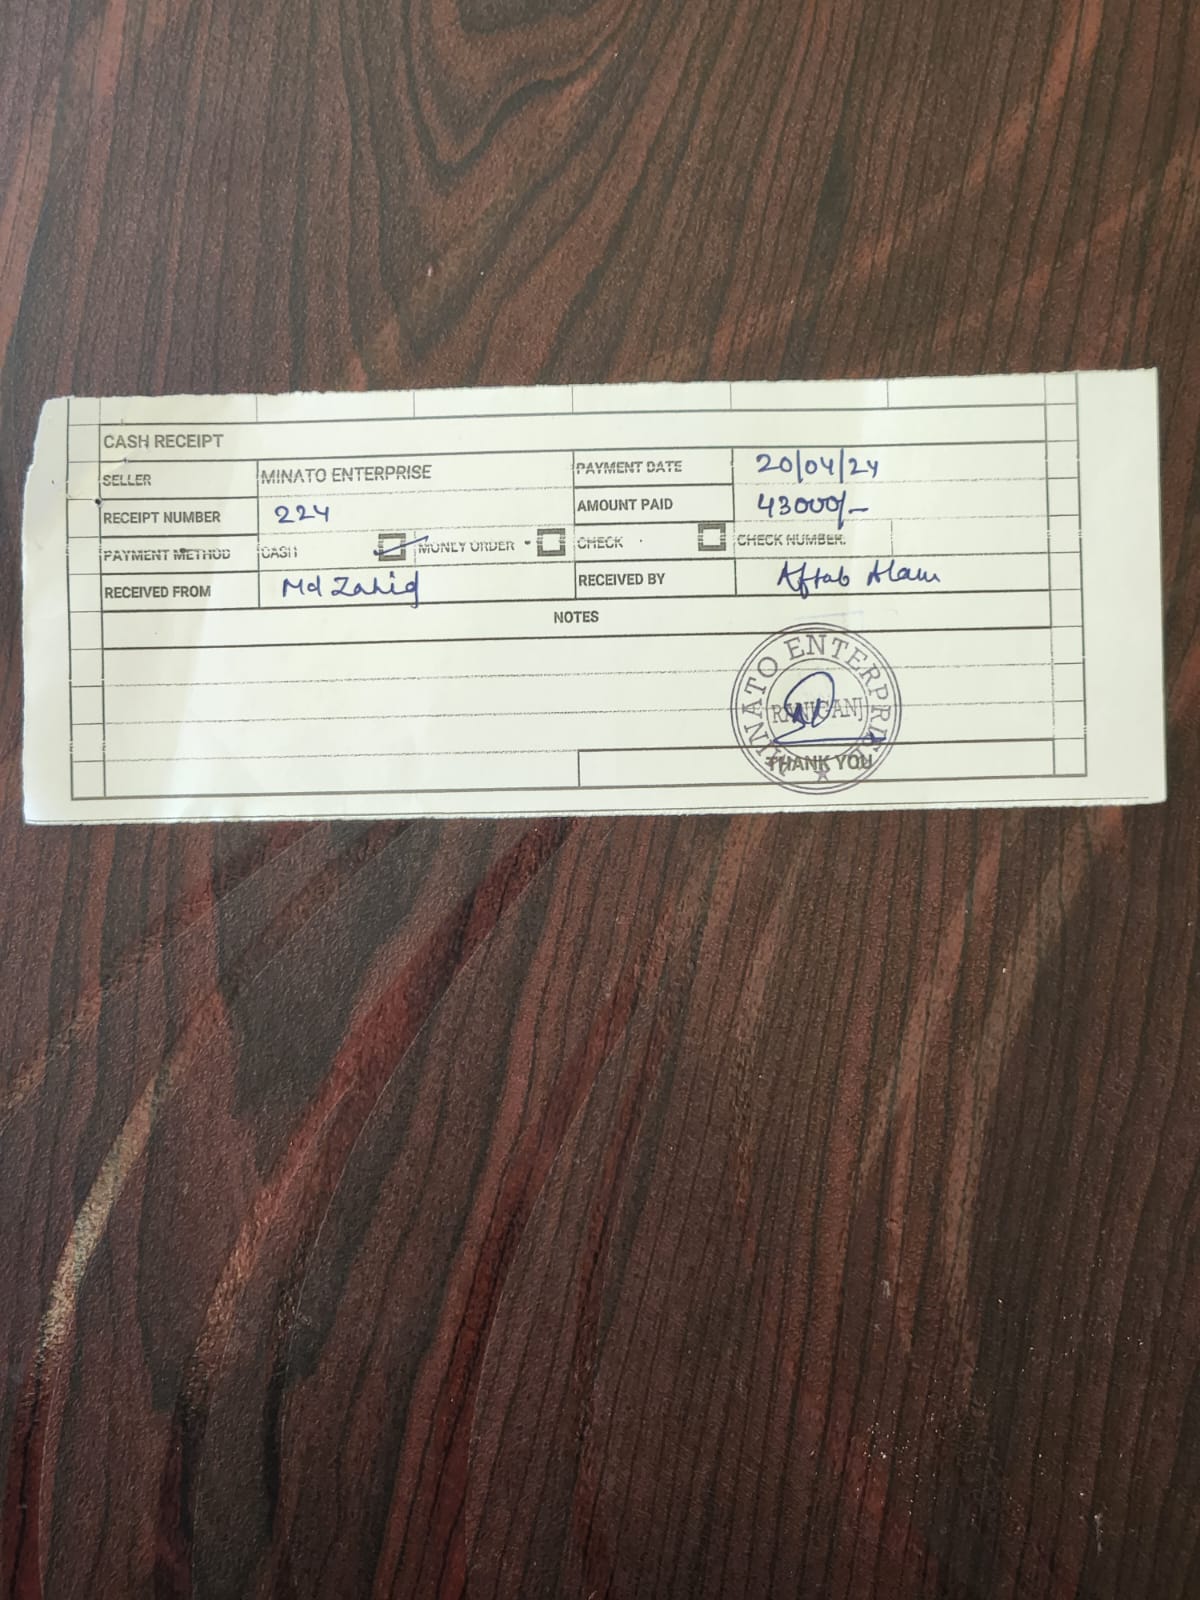 CASH RECEIPT
SELLER MINATO ENTERPRISE PAYMENT DATE 20/04/24
RECEIPT NUMBER 224 AMOUNT PAID 43000/-
PAYMENT METHOD CASH MONEY ORDER CHECK CHECK NUMBER.
RECEIVED FROM Md Zahid RECEIVED BY Aftab Alam
NOTES
MINATO ENTERPRISE
RANIGANJ
THANK YOU